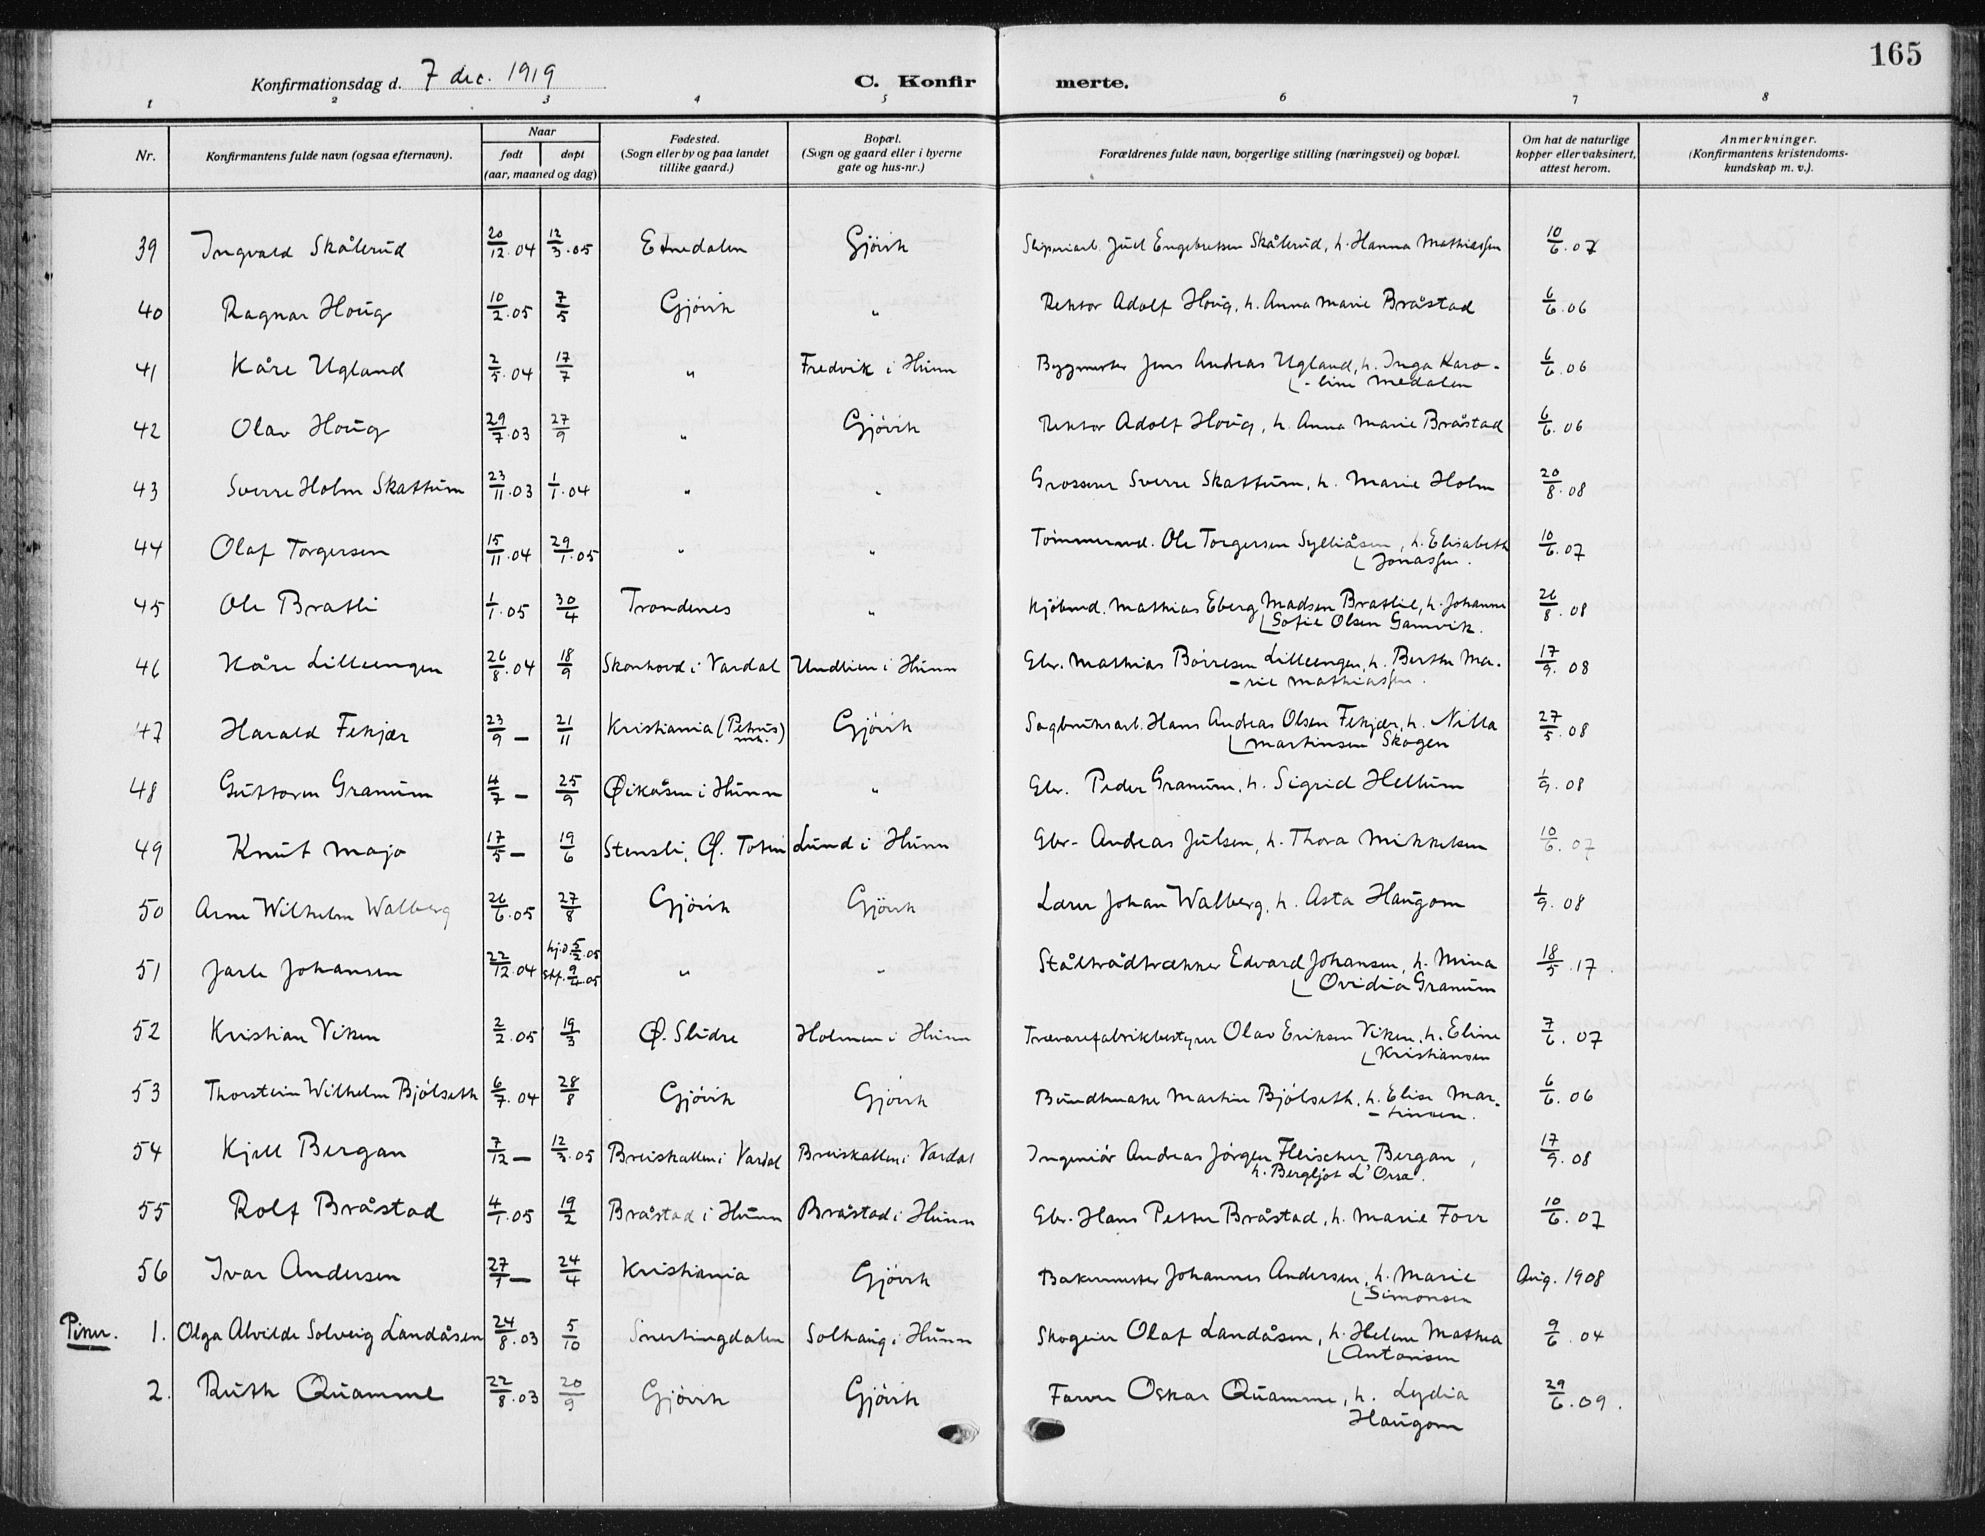 165
Konfirmationsdag d. 7 dec. 1919 C. Konfir merte.
1 2 3 4 5 6 7 8
Nr. Konfirmantens fulde navn (ogsaa efternavn). Naar født døpt (aar, maaned og dag) Fødested. (Sogn eller by og paa landet tillike gaard.) Bopæl. (Sogn og gaard eller i byerne gate og hus-nr.) Forældrenes fulde navn, borgerlige stilling (næringsvei) og bopæl. Om hat de naturlige kopper eller vaksinert, attest herom. Anmerkninger. (Konfirmantens kristendoms-kundskap m. v.).
39 Ingvald Skålerud 20/12.04 12/3.05 Etnedalen Gjövik Sliperiarb. Juel Engebretsen Skålerud, h. Hanna Mathiassen 10/6.07
40 Ragnar Houg 10/2.05 7/5 Gjövik " Rektor Adolf Houg, h. Anna Marie Bråstad 6/6.06
41 Kåre Ugland 2/5.04 17/7 " Fredvik i Hunn Byggmester Jens Andreas Ugland, h. Inga Karo-
-line Medalen 6/6.06
42 Olav Houg 29/7.03 27/9 " Gjövik Rektor Adolf Houg, h. Anna Marie Bråstad 6/6.06
43 Sverre Holm Skattum 23/11.03 1/1.04 " " Grosserer Sverre Skattum, h. Marie Holm 20/8.08
44 Olaf Torgersen 15/11.04 29/1.05 " " Tömmermd. Ole Torgersen Sylliåsen, h. Elisabeth
Jonassen. 10/6.07
45 Ole Bratli 1/1.05 30/4 Trondenes " Kjöbmd. Mathias Eberg Madsen Bratlie, h. Johanne
Sofie Olsen Gamvik. 26/8.08
46 Kåre Lilleengen 26/8.04 18/9 Skonhovd i Vardal Undlien i Hunn Gbr. Mathias Börresen Lilleengen, h. Berthe Ma-
-rie Mathiassen. 17/9.08
47 Harald Fekjær 23/9 — 21/11 Kristiania (Petrus mk.) Gjövik Sagbruksarb. Hans Andreas Olsen Fekjær, h. Nilla
Martinsen Skogen 27/5.08
48 Guttorm Granum 4/7 — 25/9 Øikåsen i Hunn " Gbr. Peder Granum, h. Sigrid Hellum 1/9.08
49 Knut Majo 17/5 — 19/6 Stensli, Ø. Toten Lund i Hunn Gbr. Andreas Julsen, h. Thora Mikkelsen 10/6.07
50 Arne Wilhelm Walberg 26/6.05 27/8 Gjövik Gjövik Lærer Johan Walberg, h. Asta Haugom 1/9.08
51 Jarle Johansen 22/12.04 hj.d. 5/2.05 stf. 9/4.05 " " Ståltrådtrækker Edvard Johansen, h. Mina
Ovidia Granum 18/5.17.
52 Kristian Viken 2/2.05 19/3 Ø. Slidre Holmen i Hunn Trævarefabrikbestyrer Olav Eriksen Viken, h. Eline
Kristiansen 7/6.07
53 Thorstein Wilhelm Bjölseth 6/7.04 28/8 Gjövik Gjövik Bundtmaker Martin Bjölseth, h. Elise Mar-
-tinsen. 6/6.06
54 Kjell Bergan 7/12 — 12/3.05 Breiskallen i Vardal Breiskallen i Vardal Ingeniör Andreas Jörgen Fleischer Bergan,
h. Bergljot L'Orsa. 17/9.08
55 Rolf Bråstad 4/1.05 19/2 Bråstad i Hunn Bråstad i Hunn Gbr. Hans Petter Bråstad, h. Marie Forr 10/6.07
56 Ivar Andersen 27/1 — 24/4 Kristiania Gjövik Bakermester Johannes Andersen, h. Marie
Simonsen Aug. 1908
Piker. 1. Olga Alvilde Solveig Landåsen 24/8.03 5/10 Snertingdalen Solhaug i Hunn Skogeier Olaf Landåsen, h. Helene Mathea
Antonsen 9/6.04
2. Ruth Quamme 22/8.03 20/9 Gjövik Gjövik Farver Oskar Quamme, h. Lydia
Haugom 29/6.09.